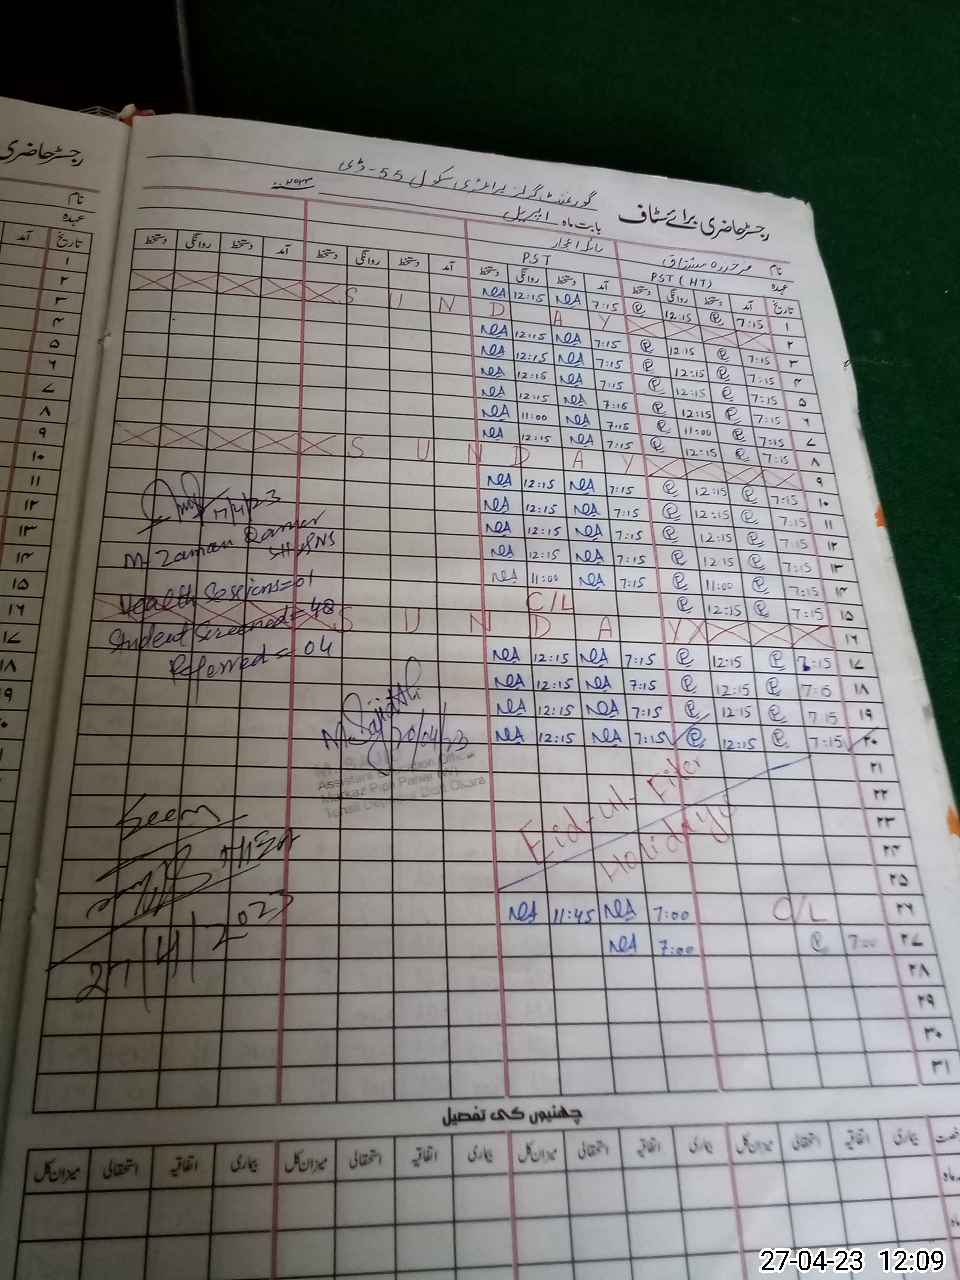 رجسٹر حاضری
نام
عہدہ
تاریخ
آمد
گورنمنٹ گرلز پرائمری سکول 55-ڈی
رجسٹر حاضری برائے سٹاف
بابت ماہ اپریل
نام
عہدہ PST (HT) PST
تاریخ آمد دستخط روانگی دستخط آمد دستخط روانگی دستخط آمد دستخط روانگی دستخط آمد دستخط روانگی دستخط
۱ 7:15 12:15 7:15 NA 12:15 NA
۲ SUNDAY
۳ 7:15 12:15 7:15 NA 12:15 NA
۴ 7:15 12:15 7:15 NA 12:15 NA
۵ 7:15 12:15 7:15 NA 12:15 NA
۶ 7:15 12:15 7:15 NA 12:15 NA
۷ 7:15 11:00 7:15 NA 11:00 NA
۸ 7:15 12:15 7:15 NA 12:15 NA
۹ SUNDAY
۱۰ 7:15 12:15 7:15 NA 12:15 NA
۱۱ 7:15 12:15 7:15 NA 12:15 NA
۱۲ 7:15 12:15 7:15 NA 12:15 NA
۱۳ 7:15 12:15 7:15 NA 12:15 NA
۱۴ 7:15 11:00 7:15 NA 11:00 NA
۱۵ 7:15 12:15 C/L
۱۶ SUNDAY
۱۷ 7:15 12:15 7:15 NA 12:15 NA
۱۸ 7:15 12:15 7:15 NA 12:15 NA
۱۹ 7:15 12:15 7:15 NA 12:15 NA
۲۰ 7:15 12:15 7:15 NA 12:15 NA
۲۱
۲۲
۲۳
۲۴
۲۵
Eid-ul-Fiter
Holidays
۲۶ C/L 7:00 NA 11:45 NA
۲۷ 7:00 7:00 NA
۲۸
۲۹
۳۰
۳۱
17/4/23
M. Zaman Qamar
SH&NS
Health Sessions=01
Student Screened=48
Referred=04
20/04/23
Assistant Education Officer
Seen
27/4/2023
چھٹیوں کی تفصیل
بیماری اتفاقیہ استحقاقی میزان کل بیماری اتفاقیہ استحقاقی میزان کل بیماری اتفاقیہ استحقاقی میزان کل
27-04-23 12:09